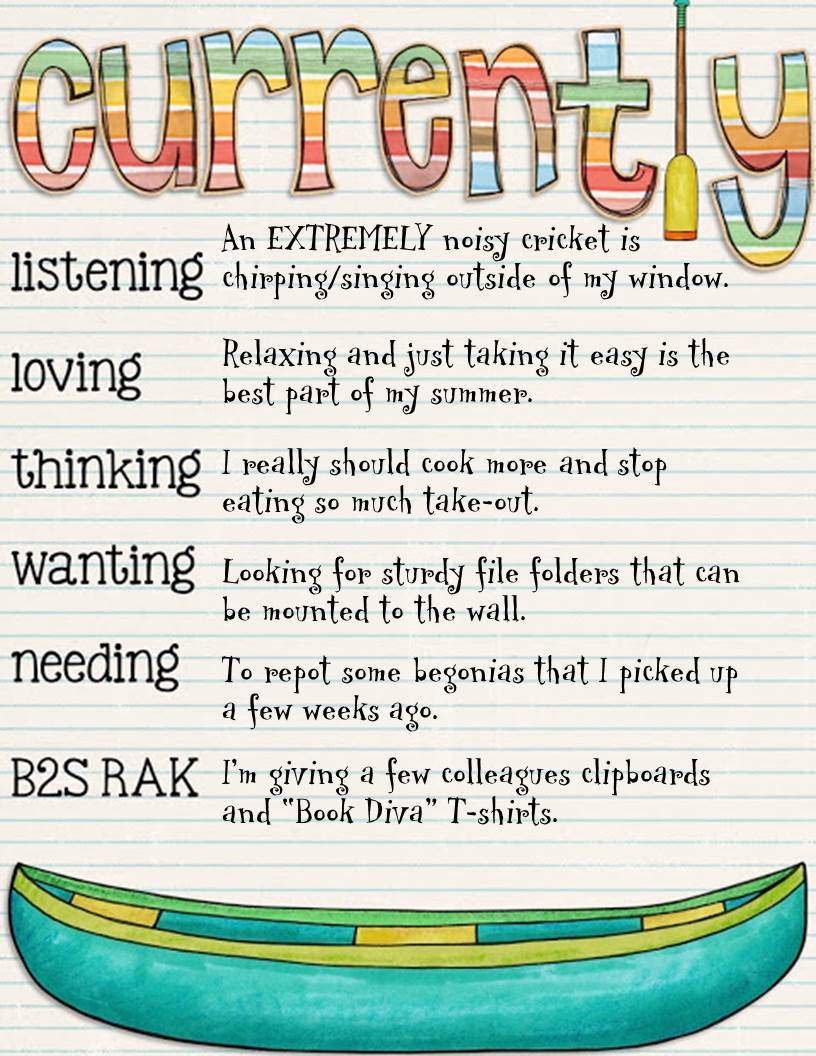 currently
listening
An EXTREMELY noisy cricket is
chirping/singing outside of my window.
loving
Relaxing and just taking it easy is the
best part of my summer.
thinking
I really should cook more and stop
eating so much take-out.
wanting
Looking for sturdy file folders that can
be mounted to the wall.
needing
To repot some begonias that I picked up
a few weeks ago.
B2S RAK
I'm giving a few colleagues clipboards
and "Book Diva" T-shirts.